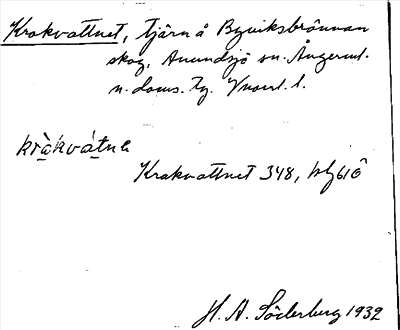 Krakvattnet, tjärn å Byviksbrännan
skog, Anundsjö sn. Ångerml.
n. doms. Tg. Vnorrl. l.
kràkvátnə
Krakvattnet 348, blg 616
H. A. Söderberg 1932